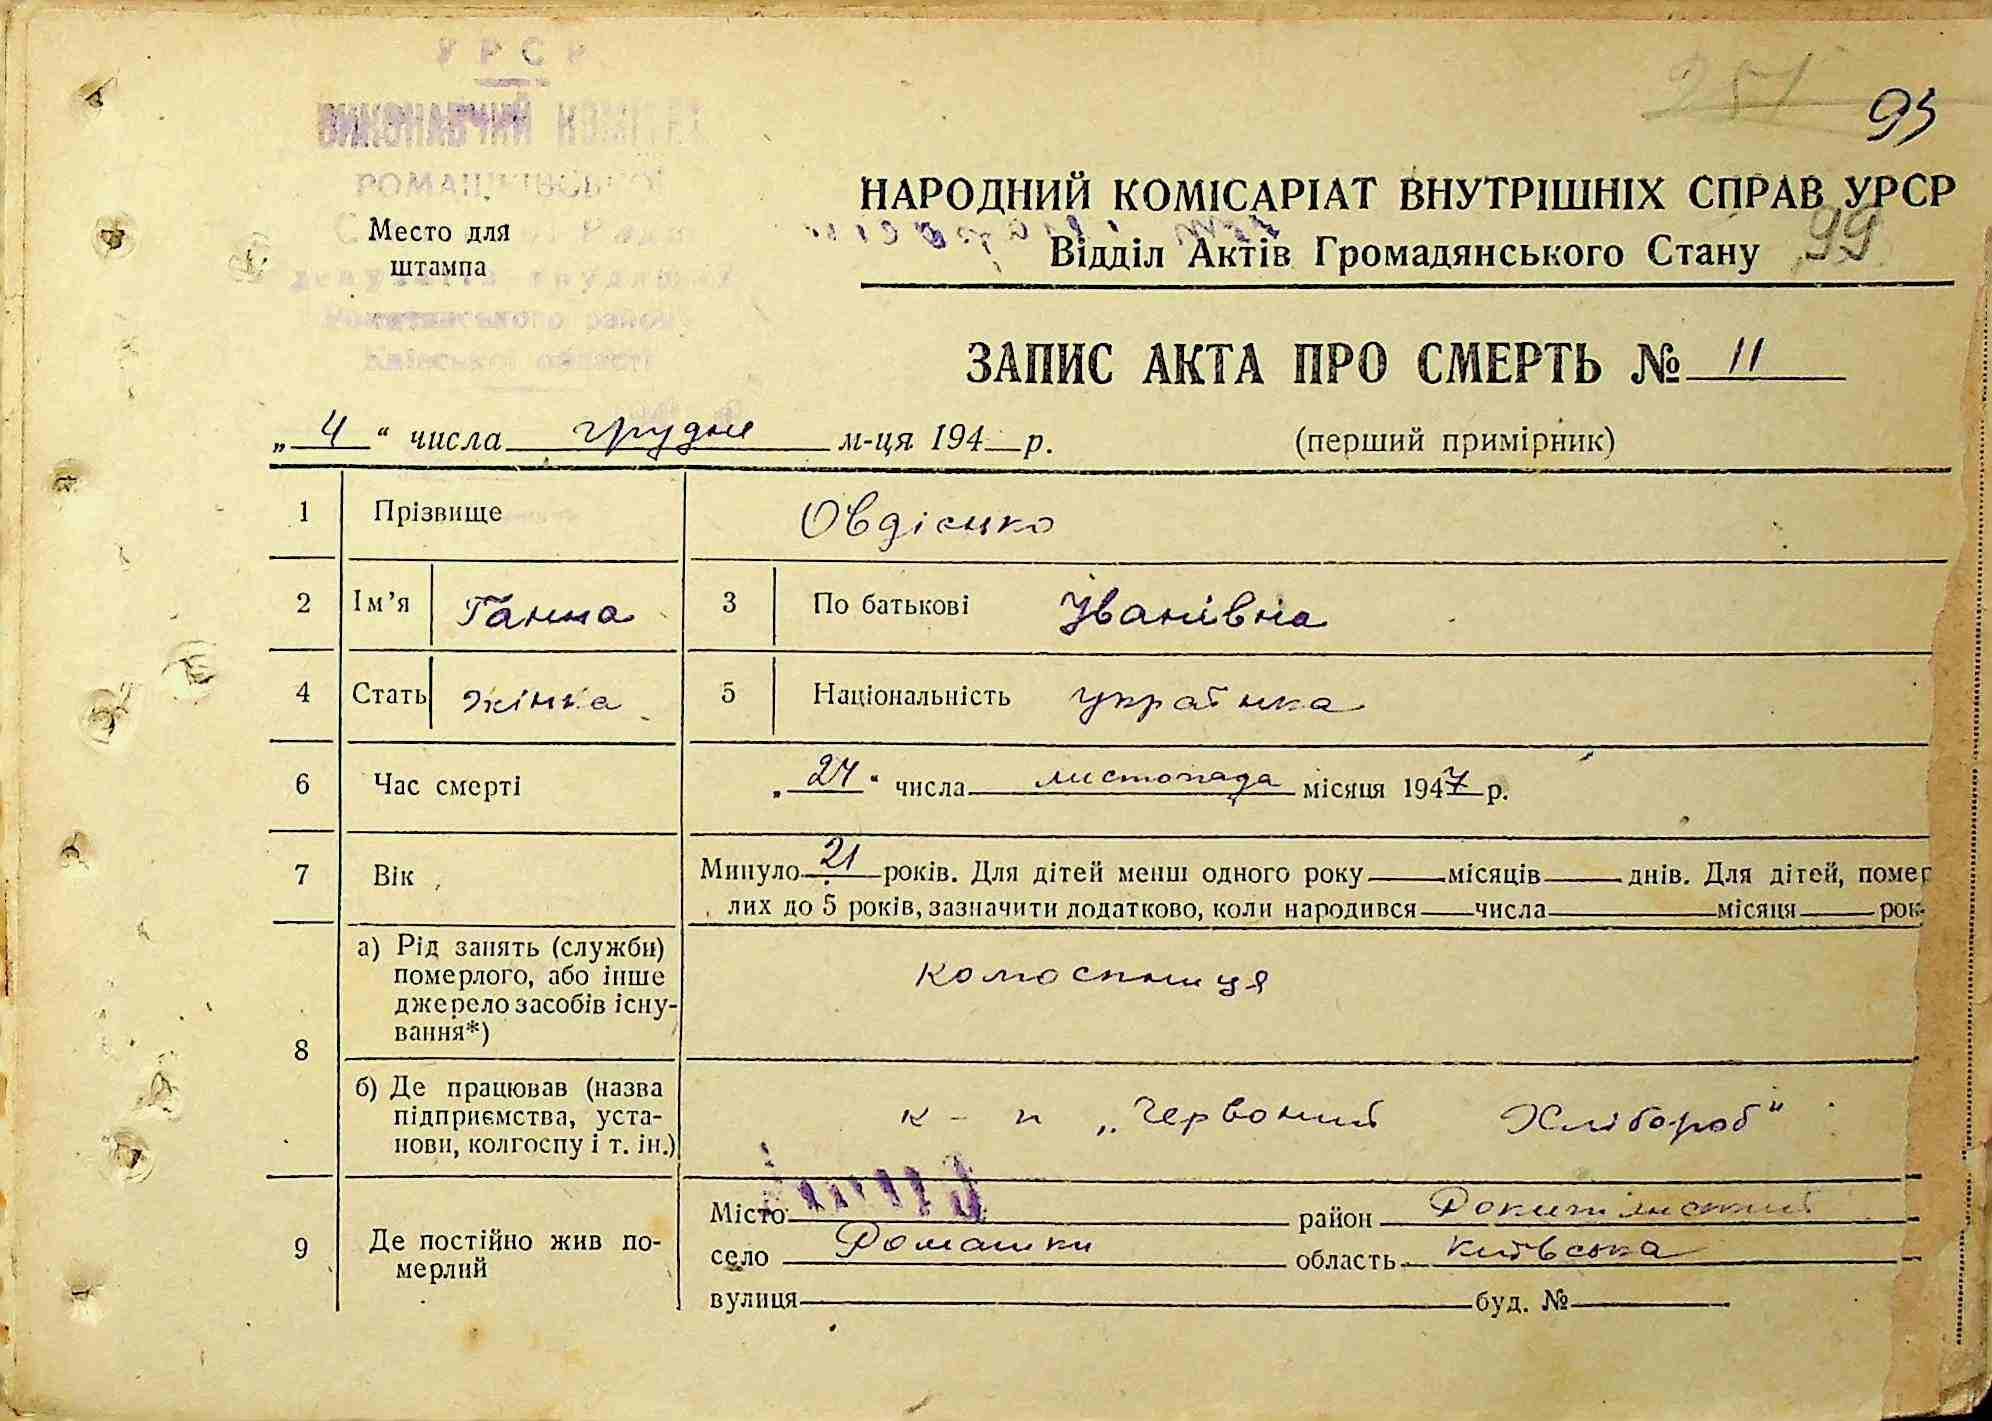 УРСР
ВИКОНАВЧИЙ КОМІТЕТ
РОМАШКІВСЬКОЇ
Ради
депутатів трудящих
Рокитнянського району
Київської області
Место для
штампа
251
93
99
НАРОДНИЙ КОМІСАРІАТ ВНУТРІШНІХ СПРАВ УРСР
Відділ Актів Громадянського Стану
ЗАПИС АКТА ПРО СМЕРТЬ № 11
„ 4 “ числа грудня м-ця 194 р. (перший примірник)
1 Прізвище Овдієнко
2 Ім’я Ганна 3 По батькові Іванівна
4 Стать жінка 5 Національність українка
6 Час смерті „ 24 “ числа листопада місяця 1947 р.
7 Вік Минуло 21 років. Для дітей менш одного року місяців днів. Для дітей, помер
лих до 5 років, зазначити додатково, коли народився числа місяця рок
8 а) Рід занять (служби)
померлого, або інше
джерело засобів існу-
вання*)
колоспниця
б) Де працював (назва
підприємства, уста-
нови, колгоспу і т. ін.)
к - п „Червоний Хлібороб"
9 Де постійно жив по-
мерлий
Місто район Рокитнянський
село Ромашки область Київська
вулиця буд. №